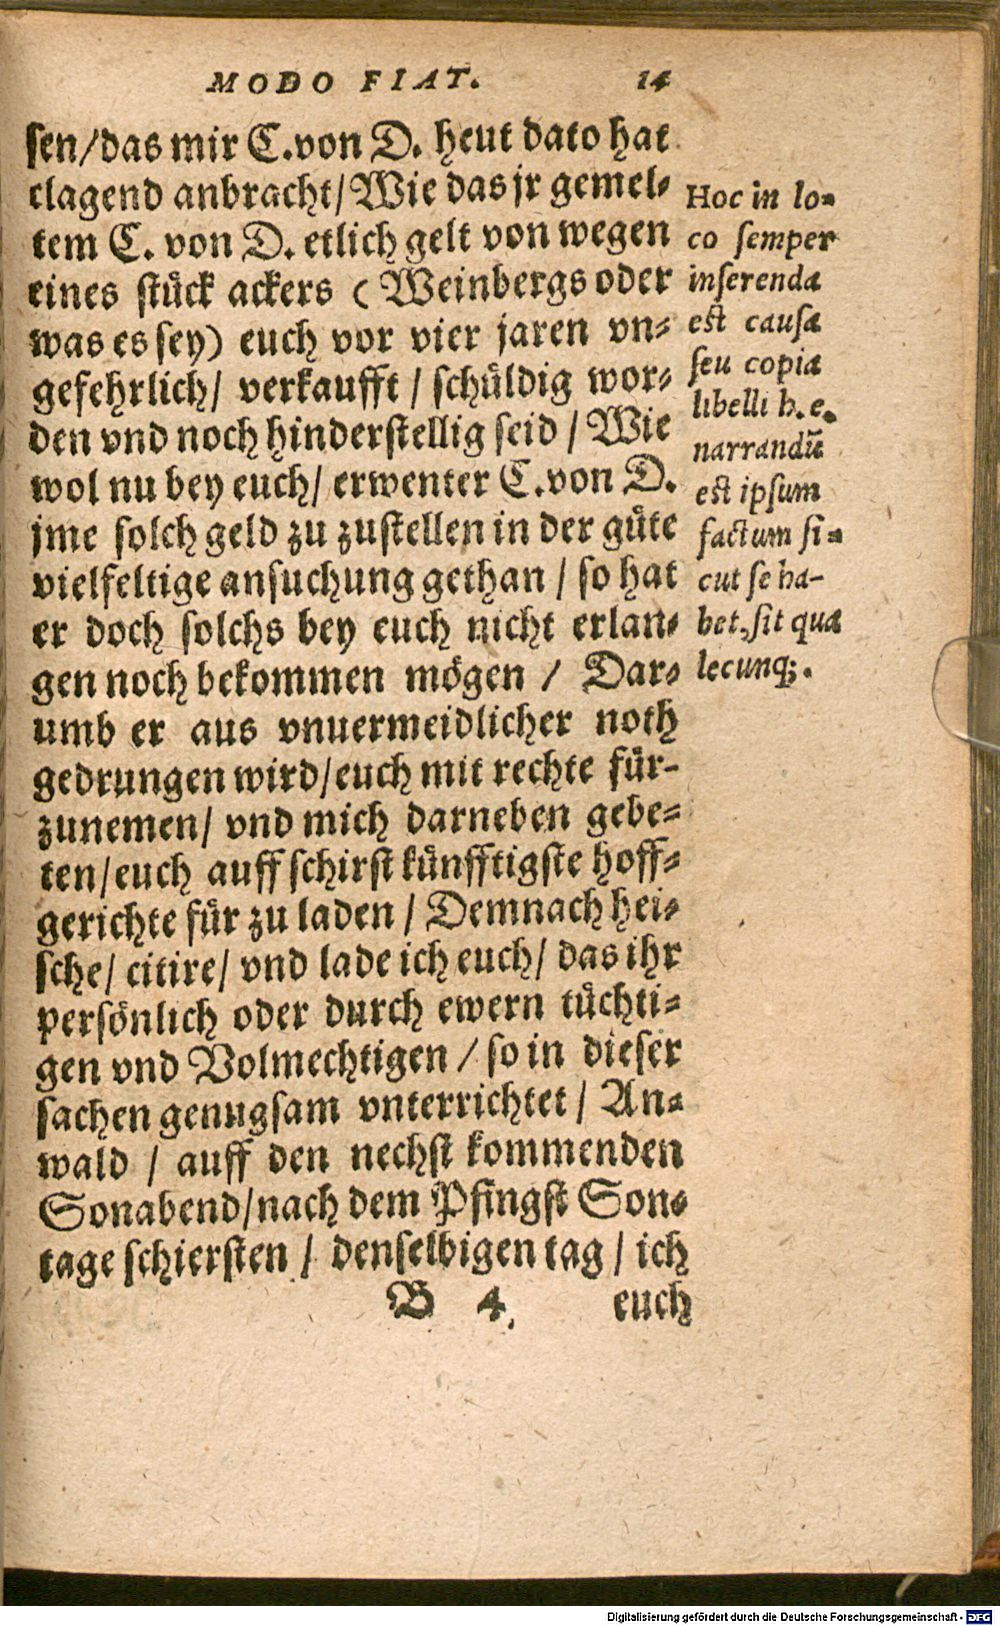 MODO FIAT. 14
sen/das mir C.von D. heut dato hat
clagend anbracht/Wie das jr gemel⸗
tem C. von D. etlich gelt von wegen
eines stück ackers ( Weinbergs oder
was es sey) euch vor vier jaren vn⸗
gefehrlich/ verkaufft / schüldig wor⸗
den vnd noch hinderstellig seid / Wie
wol nu bey euch/ erwenter C.von D.
jme solch geld zu zustellen in der güte
vielfeltige ansuchung gethan / so hat
er doch solchs bey euch nicht erlan⸗
gen noch bekommen mögen / Dar⸗
umb er aus vnuermeidlicher noth
gedrungen wird/euch mit rechte für-
zunemen/ vnd mich darneben gebe⸗
ten/euch auff schirst künfftigste hoff⸗
gerichte für zu laden / Demnach hei⸗
sche/ citire/ vnd lade ich euch/ das ihr
persönlich oder durch ewern tüchti⸗
gen vnd Volmechtigen / so in dieser
sachen genugsam vnterrichtet / An⸗
wald / auff den nechst kommenden
Sonabend/nach dem Pfingst Son⸗
tage schiersten / denselbigen tag / ich
B 4. euch
Hoc in lo⸗
co semper
inserenda
est causa
seu copia
libelli h. e.
narrandũ
est ipsum
factum si⸗
cut se ha-
bet, sit qua
lecunq;.
Digitalisierung gefördert durch die Deutsche Forschungsgemeinschaft - DFG